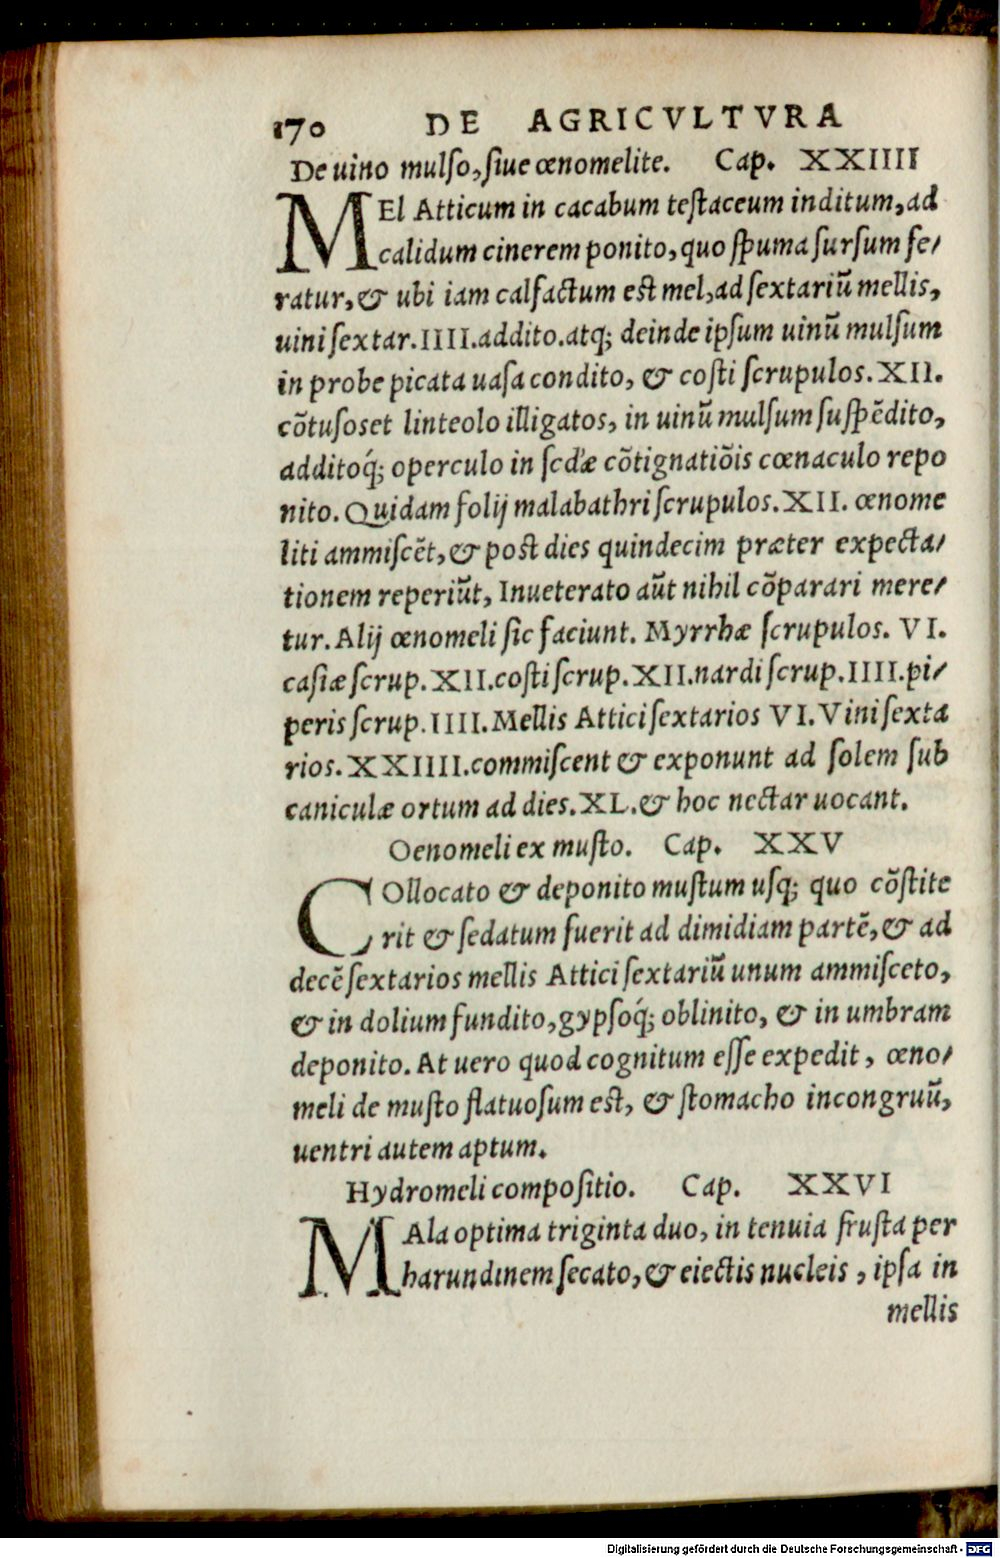 170 DE AGRICVLTVRA
De uino mulso, siue œnomelite. Cap. XXIIII
MEl Atticum in cacabum testaceum inditum, ad
calidum cinerem ponito, quo spuma sursum fe/
ratur, & ubi iam calfactum est mel, ad sextariũ mellis,
uini sextar. IIII. addito. atq; deinde ipsum uinũ mulsum
in probe picata uasa condito, & costi scrupulos. XII.
cõtusoset linteolo illigatos, in uinũ mulsum suspẽdito,
additoq́; operculo in scďæ cõtignatiõis cœnaculo repo
nito. Quidam folij malabathri scrupulos. XII. œnome
liti ammiscẽt, & post dies quindecim præter expecta/
tionem reperiũt, Inueterato aũt nihil cõparari mere/
tur. Alij œnomeli sic faciunt. Myrrhæ scrupulos. VI.
casiæ scrup. XII. costi scrup. XII. nardi scrup. IIII. pi/
peris scrup. IIII. Mellis Attici sextarios VI. Vini sexta
rios. XXIIII. commiscent & exponunt ad solem sub
caniculæ ortum ad dies. XL. & hoc nectar uocant.
Oenomeli ex musto. Cap. XXV
COllocato & deponito mustum usq; quo cõstite
rit & sedatum fuerit ad dimidiam partẽ, & ad
decẽ sextarios mellis Attici sextariũ unum ammisceto,
& in dolium fundito, gypsoq́; oblinito, & in umbram
deponito. At uero quod cognitum esse expedit, œno/
meli de musto flatuosum est, & stomacho incongruũ,
uentri autem aptum.
Hydromeli compositio. Cap. XXVI
MAla optima triginta duo, in tenuia frusta per
harundinem secato, & eiectis nucleis, ipsa in
mellis
Digitalisierung gefördert durch die Deutsche Forschungsgemeinschaft - DFG